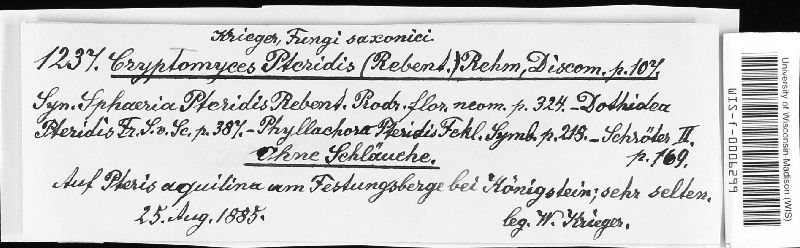 Krieger, Fungi saxonici
1237. Cryptomyces Pteridis (Rebent.) Rehm, Discom. p. 107.
Syn. Sphæria Pteridis Rebent. Rodr. flor. neom. p. 324. – Dothidea
Pteridis Fr. S. v. Sc. p. 387. – Phyllachora Pteridis Fckl. Symb. p. 218. – Schröter II.
p. 169.
Ohne Schläuche.
Auf Pteris aquilina am Festungsberge bei Königstein; sehr selten.
25. Aug. 1885.
leg. W. Krieger.
University of Wisconsin Madison (WIS)
WIS-f-0006299